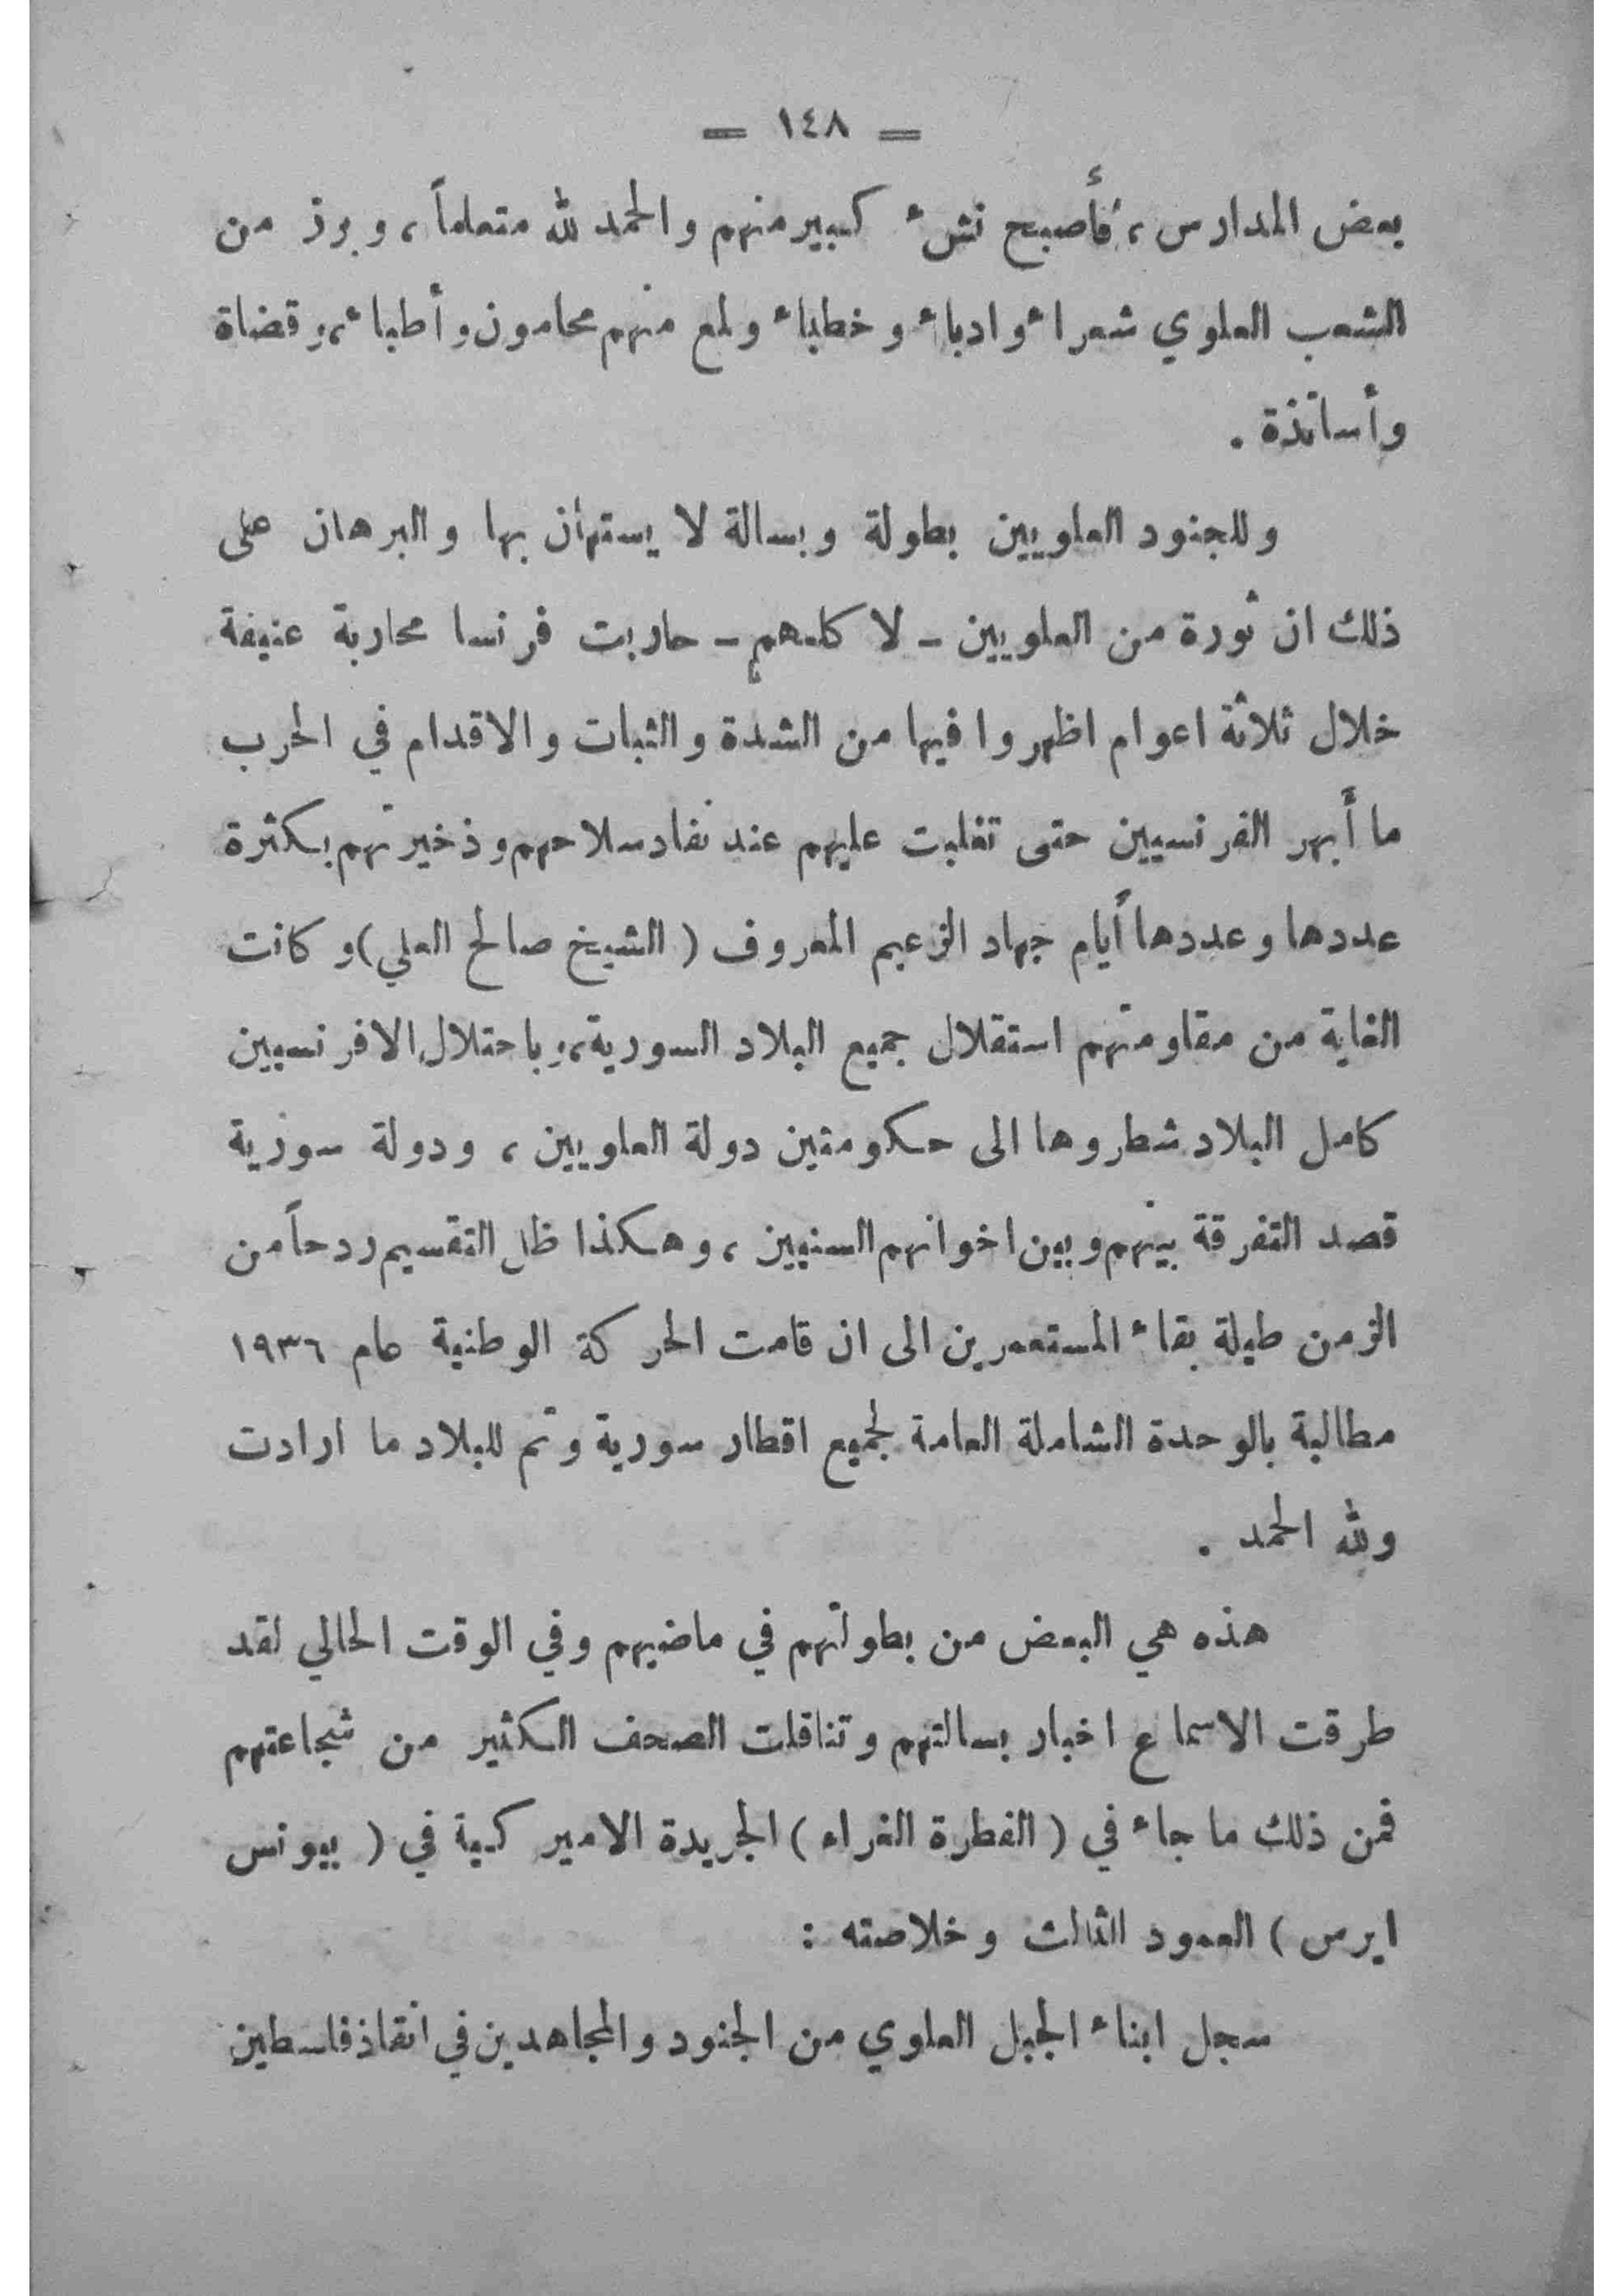 = ١٤٨ =
بعض المدارس ، فأصبح نشء كبير منهم والحمد لله متعلماً ، وبرز من
الشعب العلوي شعراء وادباء وخطباء ولمع منهم محامون وأطباء ، وقضاة
وأساتذة .
وللجنود العلويين بطولة وبسالة لا يستهان بها والبرهان على
ذلك ان ثورة من العلويين - لا كلهم - حاربت فرنسا محاربة عنيفة
خلال ثلاثة اعوام اظهروا فيها من الشدة والثبات والاقدام في الحرب
ما أبهر الفرنسيين حتى تغلبت عليهم عند نفاد سلاحهم وذخيرتهم بكثرة
عددها وعددها أيام جهاد الزعيم المعروف ( الشيخ صالح العلي ) وكانت
الغاية من مقاومتهم استقلال جميع البلاد السورية ، وباحتلال الافرنسيين
كامل البلاد شطروها الى حكومتين دولة العلويين ، ودولة سورية
قصد التفرقة بينهم وبين اخوانهم السنيين ، وهكذا ظل التقسيم ردحاً من
الزمن طيلة بقاء المستعمرين الى ان قامت الحركة الوطنية عام ١٩٣٦
مطالبة بالوحدة الشاملة العامة لجميع اقطار سورية وتم للبلاد ما ارادت
ولله الحمد .
هذه هي البعض من بطولتهم في ماضيهم وفي الوقت الحالي لقد
طرقت الاسماع اخبار بسالتهم وتناقلت الصحف الكثير من شجاعتهم
فمن ذلك ما جاء في ( الفطرة الغراء ) الجريدة الاميركية في ( بيونس
ايرس ) العمود الثالث وخلاصته :
سجل ابناء الجبل العلوي من الجنود والمجاهدين في انقاذ فلسطين